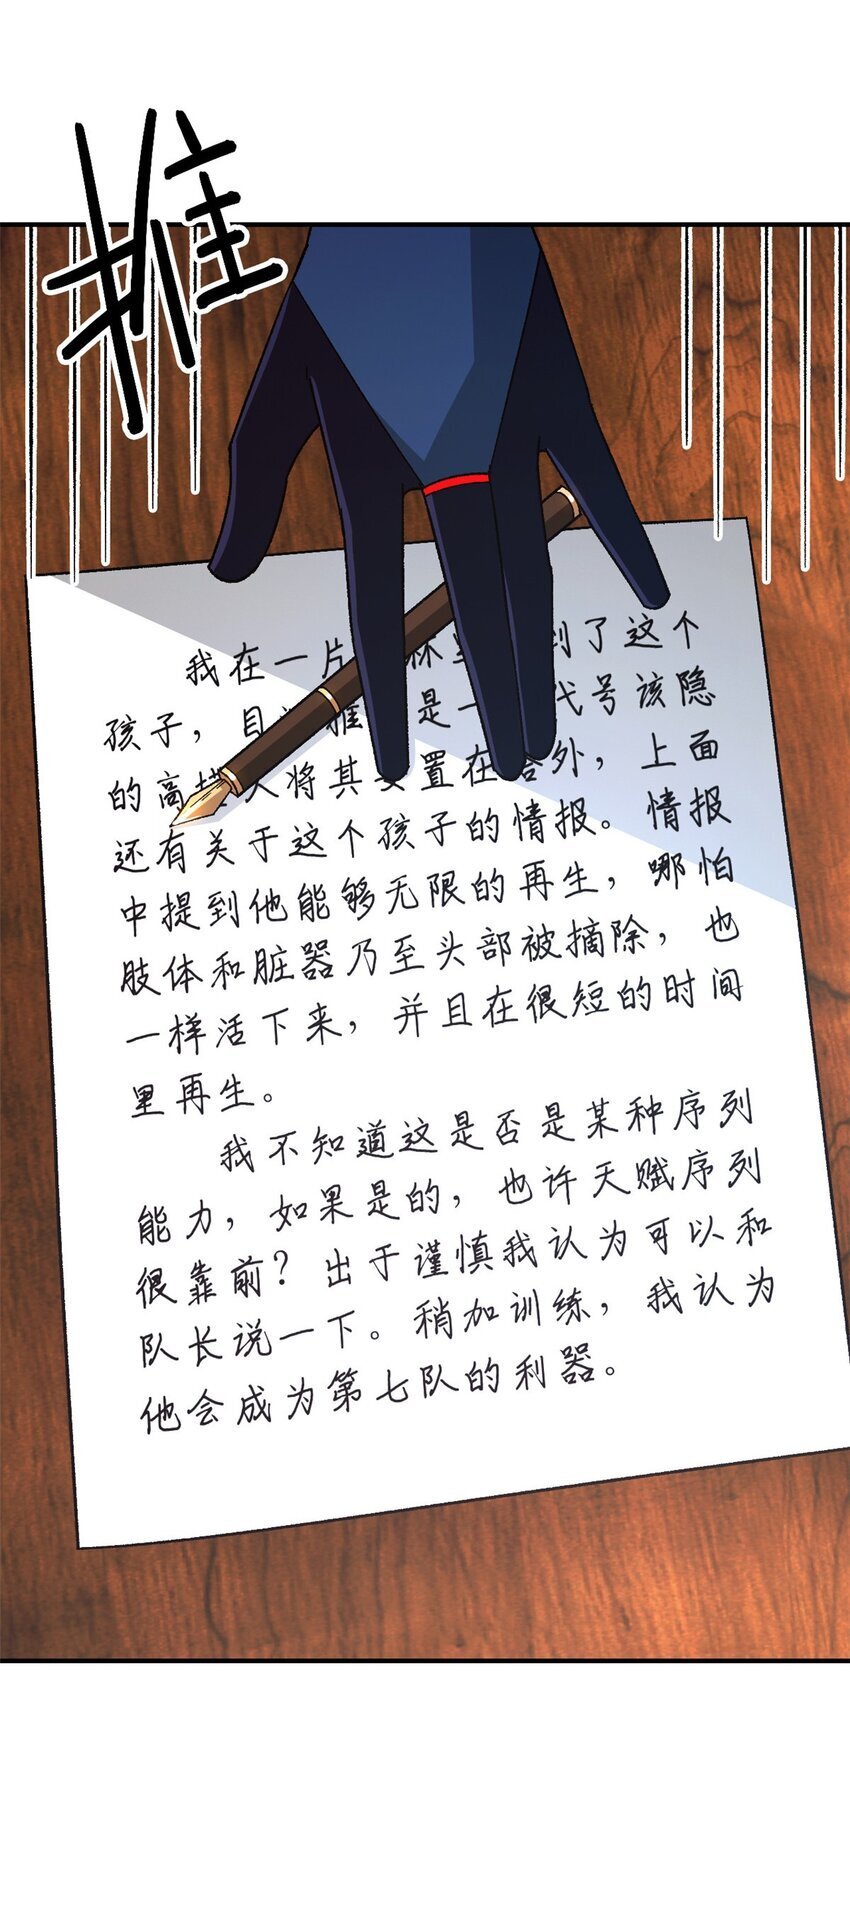 推
我在一片 到了这个
孩子，目 推 是一 代号该隐
的高 人将其安置在 外，上面
还有关于这个孩子的情报。情报
中提到他能够无限的再生，哪怕
肢体和脏器乃至头部被摘除，也
一样活下来，并且在很短的时间
里再生。
我不知道这是否是某种序列
能力，如果是的，也许天赋序列
很靠前？出于谨慎我认为可以和
队长说一下。稍加训练，我认为
他会成为第七队的利器。